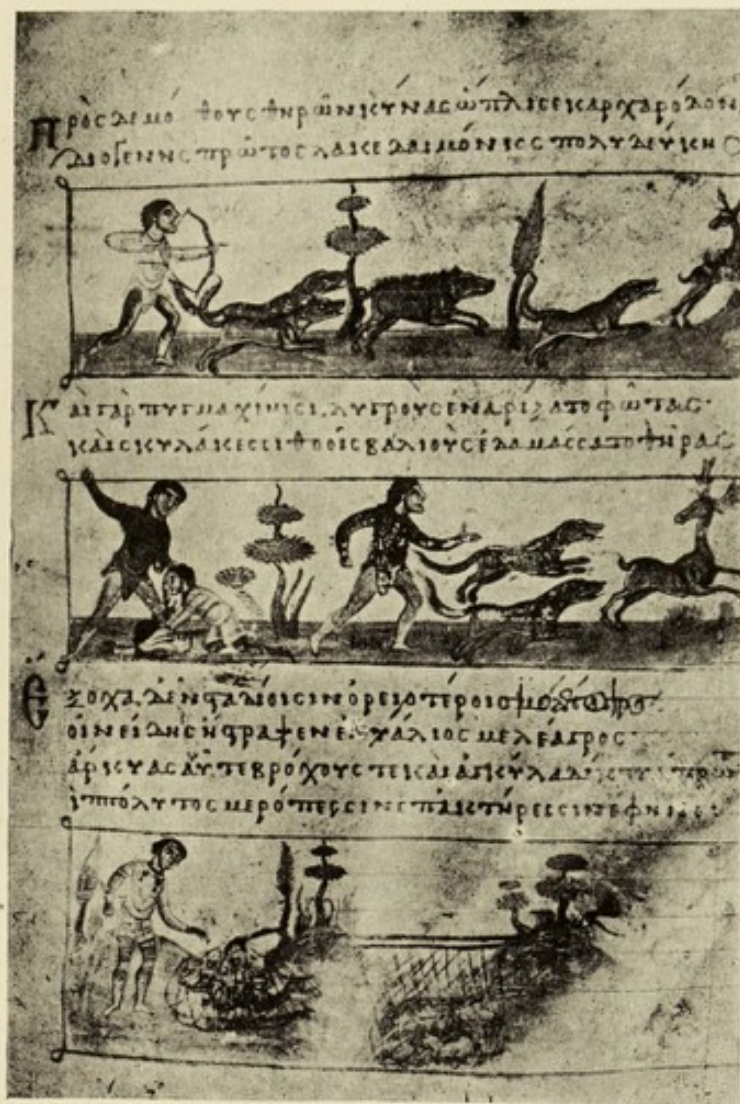 Πρὸς δὲ μόθους θηρῶν κύνας ὥπλισε καρχαρόδον
διογενὴς πρῶτος λακεδαιμόνιος πολυδεύκης
Καὶ γὰρ πυγμαχίηισι λυγροὺς ἐναρίξατο φῶτας·
καὶ σκυλάκεσσι θοοῖς βαλιοὺς ἐδαμάσσατο θῆρας
Ἔξοχα δ' ἐν σταδίοισιν ὀρειοτέροισι
οἰνείδης ἤστραψεν ἐνυάλιος μελέαγρος·
ἄρκυας αὖτε βρόχους τε καὶ ἀγκύλα δίκτυα πρῶτ
ἱππόλυτος μερόπεσσιν ἐπακτήρεσσιν ἔφηνε·